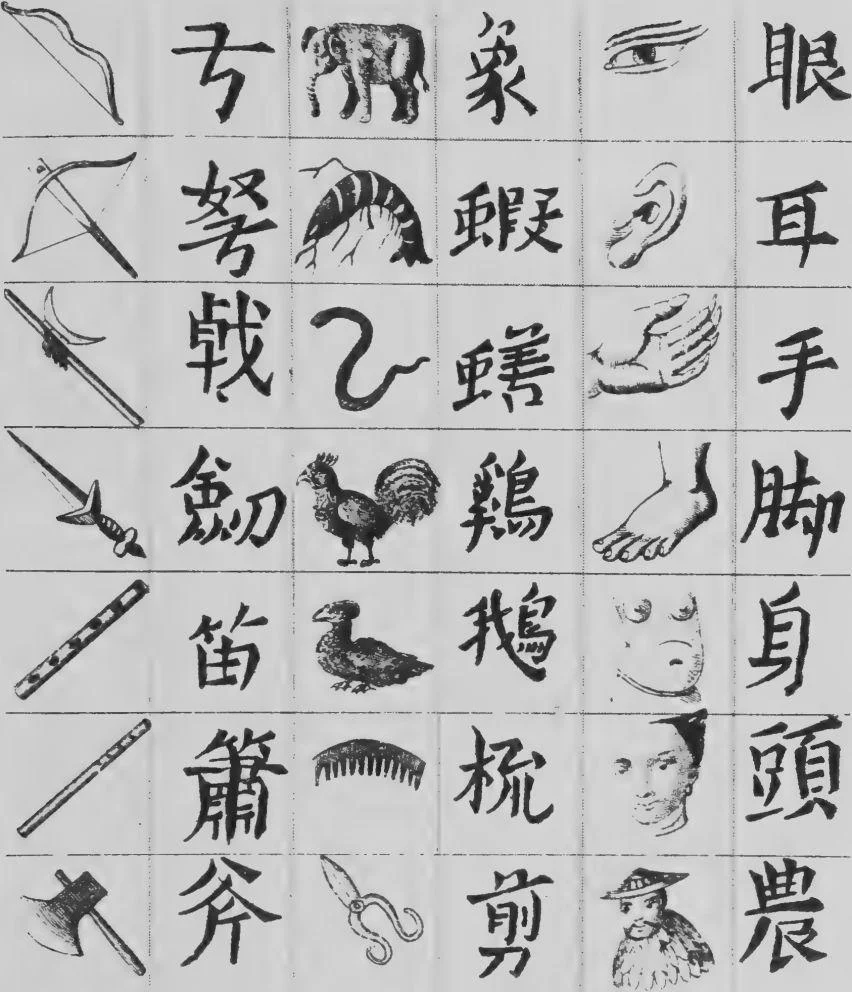 眼耳手脚身頭農
象蝦蟮鷄鵝梳剪
弓弩戟劒笛簫斧